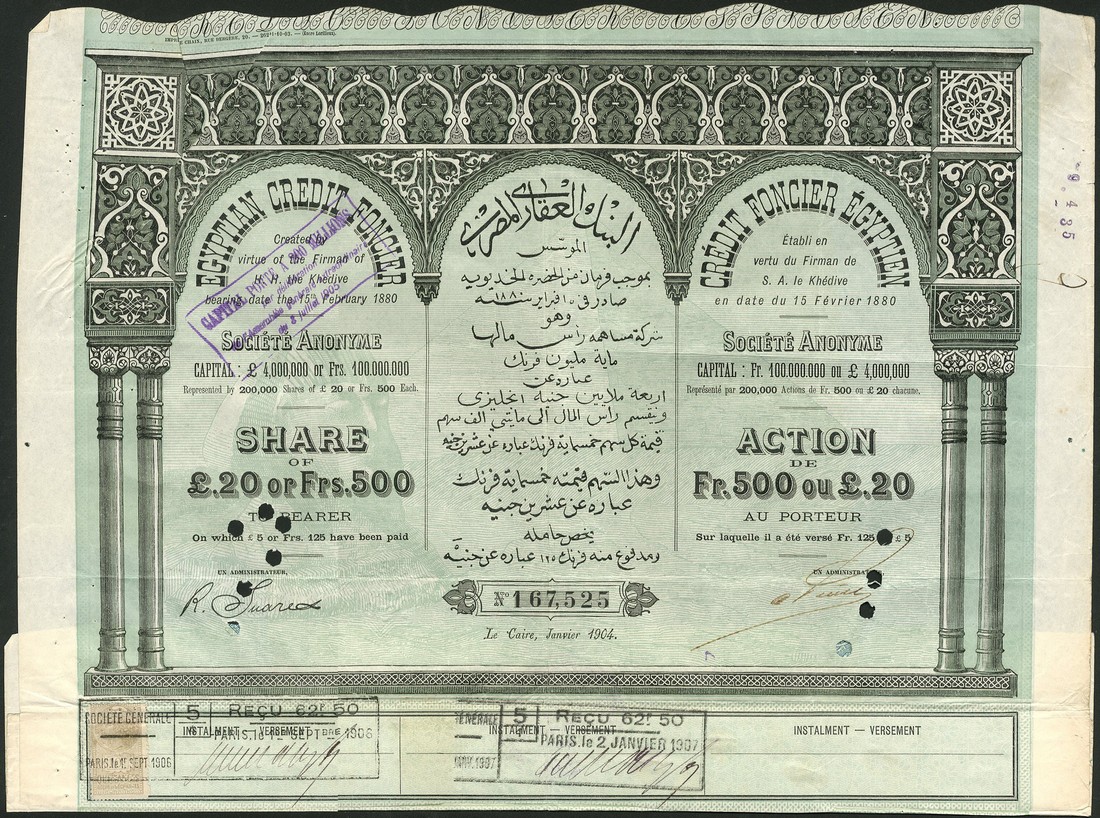 IMPRIMERIE CHAIX, RUE BERGÈRE, 20. — 20211-10-03. — (Encre Lorilleux).
EGYPTIAN CREDIT FONCIER
Created by
virtue of the Firman of
H. H. the Khédive
bearing date the 15th February 1880
SOCIÉTÉ ANONYME
CAPITAL : £ 4,000,000 or Frs. 100.000.000
Represented by 200,000 Shares of £ 20 or Frs. 500 Each.
SHARE
OF
£.20 or Frs.500
TO BEARER
On which £ 5 or Frs. 125 have been paid
UN ADMINISTRATEUR,
R. Suares
CAPITAL PORTÉ A 200 MILLIONS
par délibération de
l'Assemblée générale extraordinaire
de 8 Juillet 1905
البنك العقارى المصرى
المؤسس
بموجب فرمان من الحضرة الخديوية
صادر فى ١٥ فبراير سنة ١٨٨٠
وهو
شركة مساهمة رأس مالها
ماية مليون فرنك
عبارة عن
اربعة ملايين جنيه انجليزى
وينقسم رأس المال الى مايتى الف سهم
قيمة كل سهم خمسماية فرنك عبارة عن عشرين جنيه
وهذا السهم قيمته خمسماية فرنك
عبارة عن عشرين جنيه
يخص حامله
ومدفوع منه فرنك ١٢٥ عبارة عن جنيه
No 167,525
Le Caire, Janvier 1904.
CRÉDIT FONCIER ÉGYPTIEN
Établi en
vertu du Firman de
S. A. le Khédive
en date du 15 Février 1880
SOCIÉTÉ ANONYME
CAPITAL : Fr. 100.000.000 ou £ 4,000,000
Représenté par 200,000 Actions de Fr. 500 ou £ 20 chacune.
ACTION
DE
Fr. 500 ou £. 20
AU PORTEUR
Sur laquelle il a été versé Fr. 125 £ 5
UN ADMINISTRATEUR
9. 4 35
SOCIÉTÉ GÉNÉRALE
5
REÇU 62f 50
INSTALMENT — VERSEMENT
PARIS, le 12 SEPTBRE 1906
PARIS, le 12 SEPT 1906
GÉNÉRALE
5
REÇU 62f 50
INSTALMENT — VERSEMENT
PARIS, le 2 JANVIER 1907
JANV. 1907
INSTALMENT — VERSEMENT